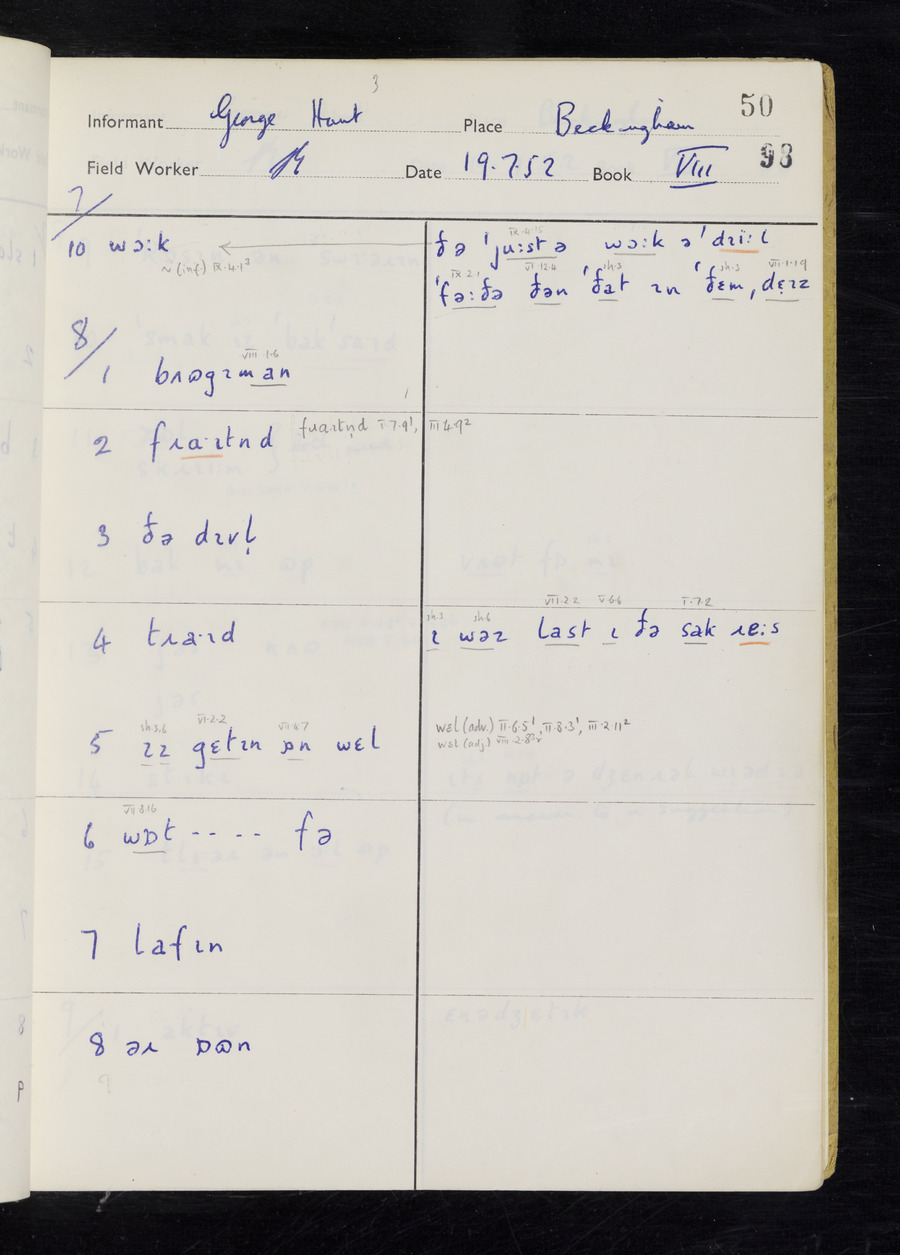 3
50
Informant George Hunt Place Beckingham
93
Field Worker Date 19.7.52 Book VIII
7/
10 wɔ:k ðə ˈju:st ə wɔ:k ə ˈdɹi:l
IX.4.15
~ (inf) IX.4.1³
IX.2.1 VI.12.4 sh.3 sh.3 VII.1.19
ˈfə:ðə ðən ˈðat ɪn ˈðɛm, dɛɪz
8/
VIII.1.6
1 bʌɷgɪman
2 fɹa·ɪtnd fɹaɪtn̩d I.7.9¹, III.4.9²
3 ðə dɪvl̩
4 tɹa·ɪd
sh.3 sh.6 VII.2.2 V.6.6 I.7.2
ɪ wəz last ɪ ðə sak ɹe:s
sh.3.6 VI.2.2 VII.4.7
5 ɪz gɛtɪn ɒn wɛl
wɛl (adv.) II.6.5¹, II.8.3¹, III.2.11²
wɛl (adj)
VII.8.16
6 wɒt ---- fə
7 lafɪn
8 əɹ ɒɷn